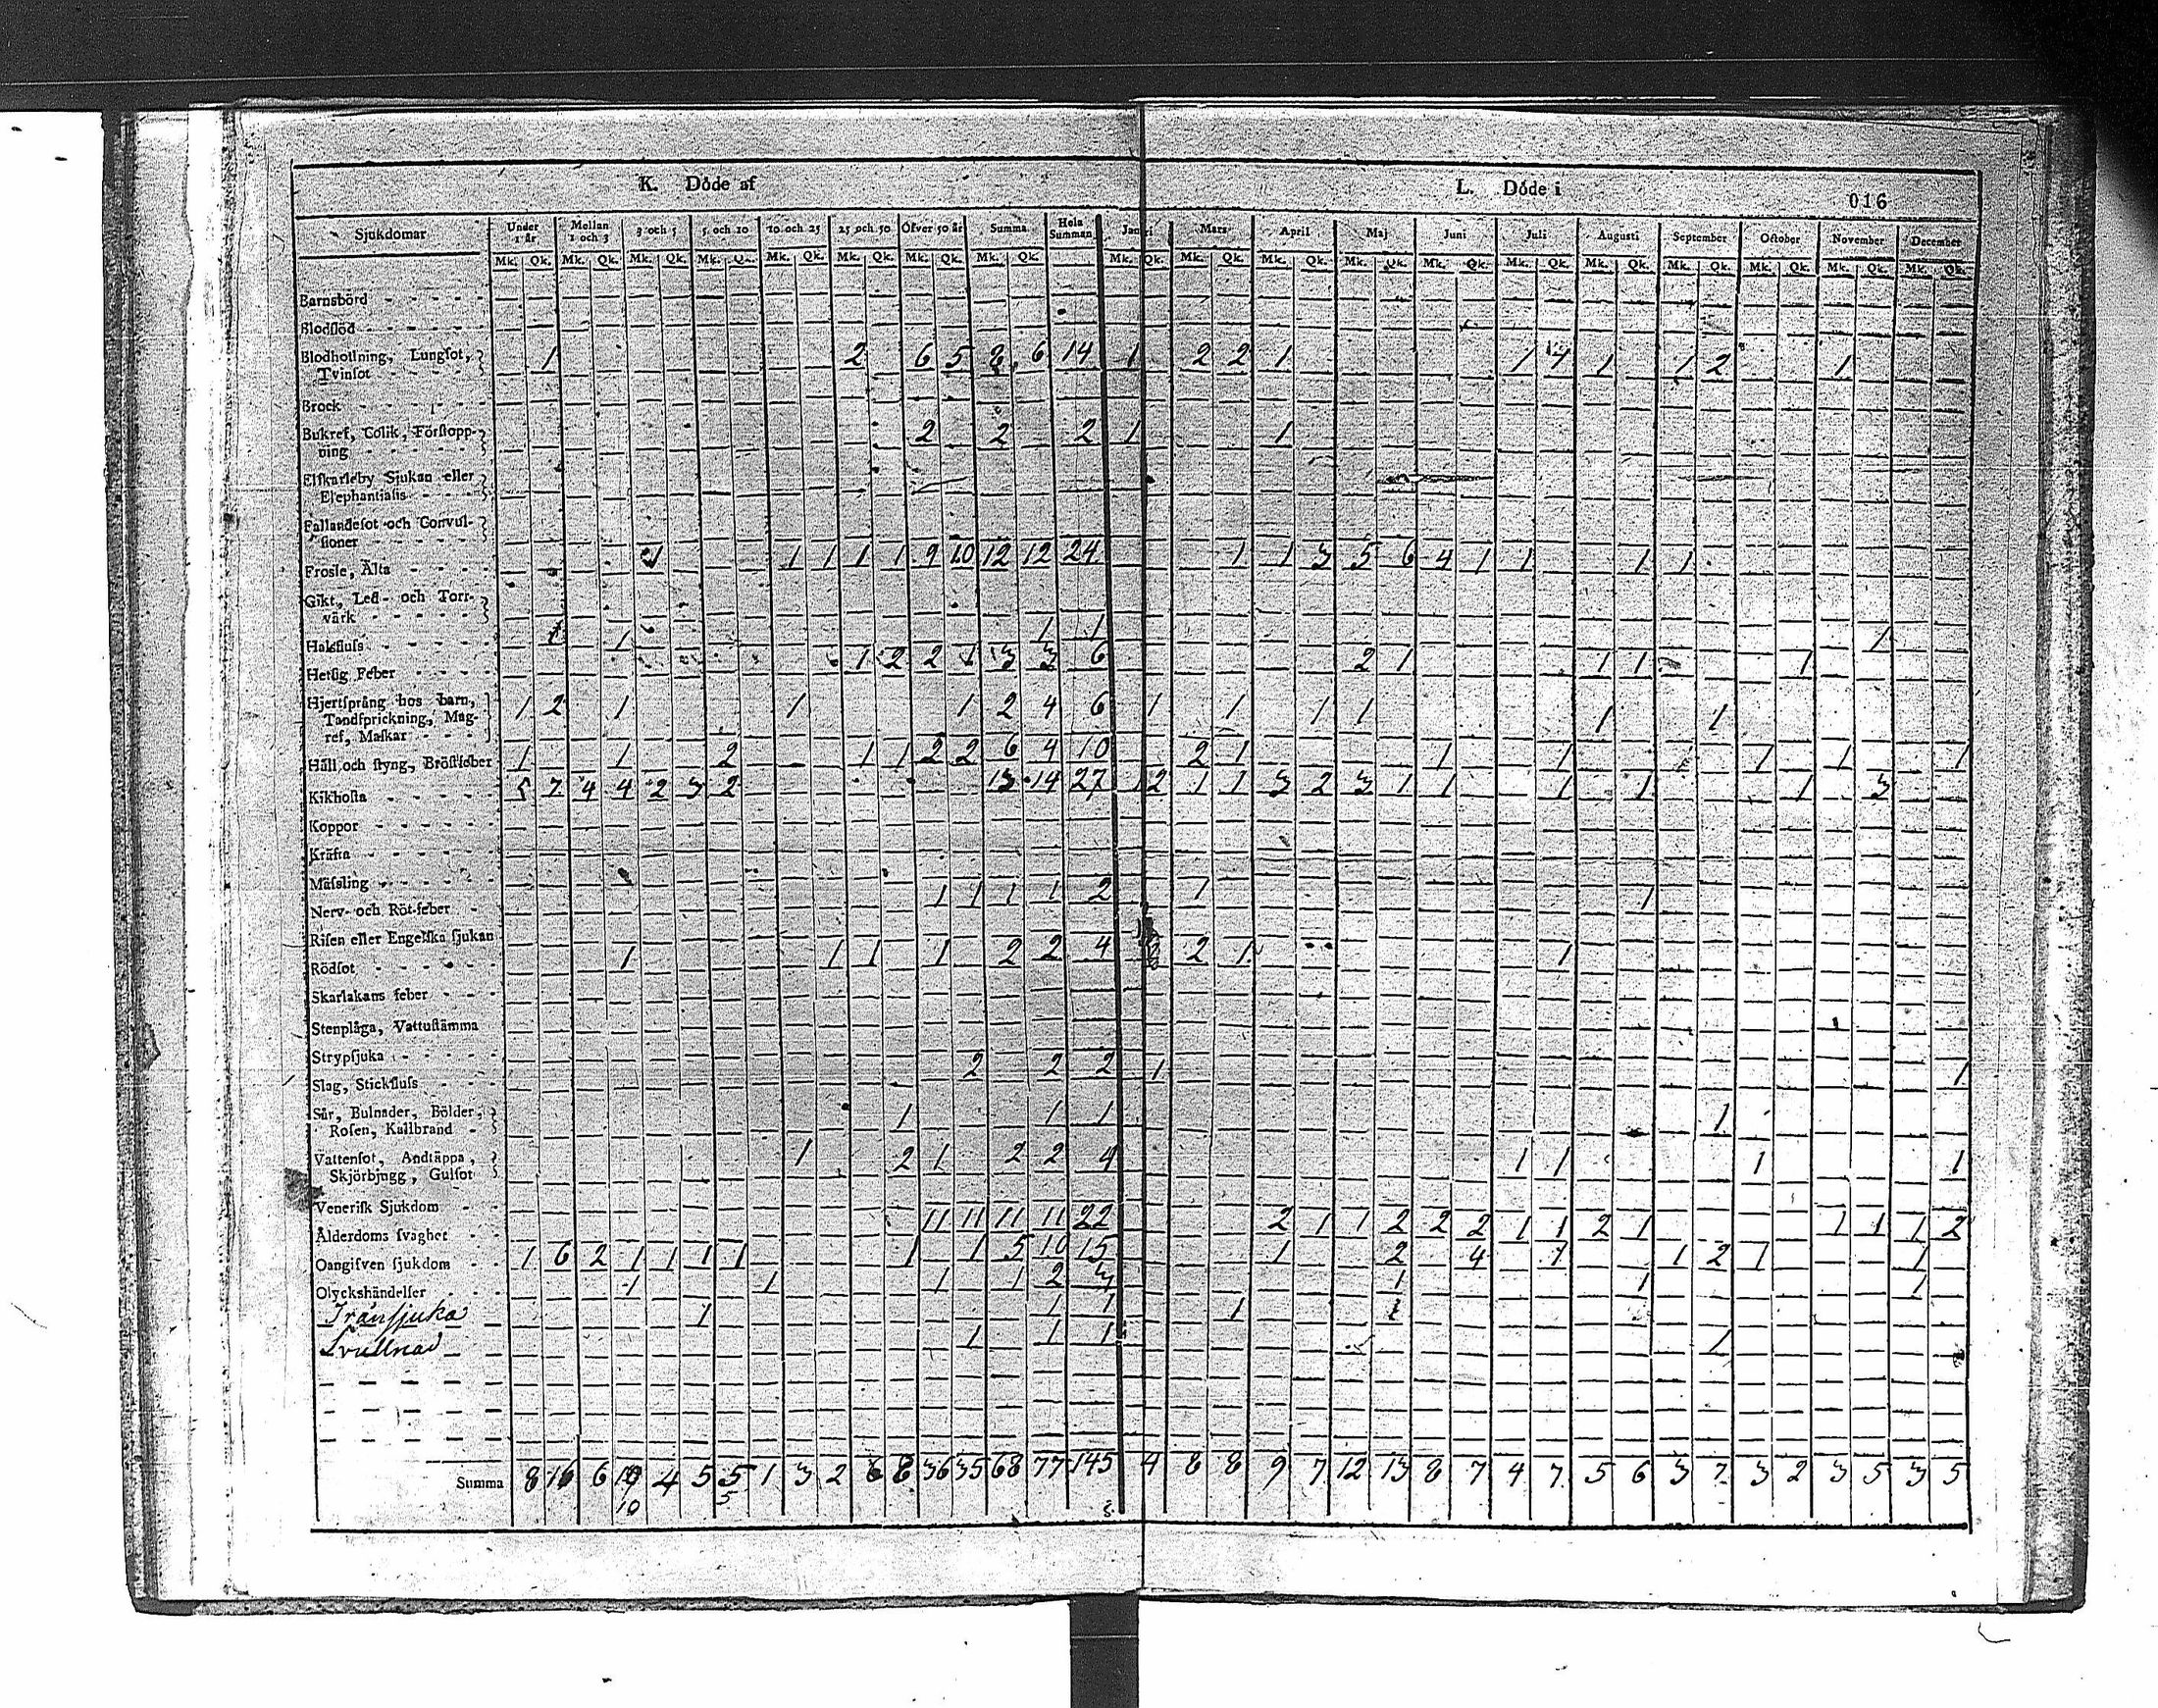 K. Döde af
L. Döde i
016
Sjukdomar Under 1 år Mellan 1 och 3 3 och 5 5 och 10 10 och 25 25 och 50 Öfver 50 år Summa Hela Summan Mars April Maj Juni Juli Augusti September October November December
Mk. Qk. Mk. Qk. Mk. Qk. Mk. Qk. Mk. Qk. Mk. Qk. Mk. Qk. Mk. Qk. Mk. Qk. Mk. Qk. Mk. Qk. Mk. Qk. Mk. Qk. Mk. Qk. Mk. Qk. Mk. Qk. Mk. Qk. Mk. Qk. Mk. Qk.
Barnsbörd
Blodflöd
Blodhostning, Lungsot, 1 2 6 5 8 6 14 1 2 2 1 1 4 1 1 2 1
Tvinsot
Brock
Bukref, Colik, Förstopp- 2 2 2 1 1
ning
Elfkarleby Sjukan eller
Elephantiasis
Fallandesot och Convul-
sioner
Frosle, Älta 1 1 1 1 1 9 10 12 12 24 1 1 3 5 6 4 1 1 1 1
Gikt, Led- och Torr-
värk
Halsfluss 1 1 1 1
Hetsig Feber 1 2 2 1 3 3 6 2 1 1 1 1
Hjertsprång hos barn, 1 2 1 1 1 2 4 6 1 1 1 1 1 1
Tandsprickning, Mag-
ref, Maskar
Håll och styng, Bröstfeber 1 1 2 1 1 2 2 6 4 10 2 1 1 1 1 1 1
Kikhosta 5 7 4 4 2 3 2 13 14 27 1 2 1 1 3 2 3 1 1 1 1 1 3
Koppor
Kräfta
Mässling
Nerv- och Röt-feber 1 1 1 1 2 1 1
Risen eller Engelska sjukan
Rödsot 1 1 1 1 2 2 4 2 1 1
Skarlakans feber
Stenplåga, Vattustämma
Strypsjuka
Slag, Stickfluss 2 2 2 1 1
Sår, Bulnader, Bölder, 1 1 1 1
Rosen, Kallbrand
Vattensot, Andtäppa, 1 2 1 2 2 4 1 1 1 1
Skjörbjugg, Gulsot
Venerisk Sjukdom
Ålderdoms svaghet 11 11 11 11 22 2 1 1 2 2 2 1 1 2 1 1 1 1 2
Oangifven sjukdom 1 6 2 1 1 1 1 1 1 5 10 15 1 2 4 1 1 2 1 1
Olyckshändelser 1 1 1 1 2 3 1 1 1
Tränsjuka 1 1 1 1
Svullnad 1 1 1 1
Summa 8 16 6 10 4 5 5 1 3 2 6 8 36 35 68 77 145 4 8 8 9 7 12 13 8 7 4 7 5 6 3 7 3 2 3 5 3 5
10 5